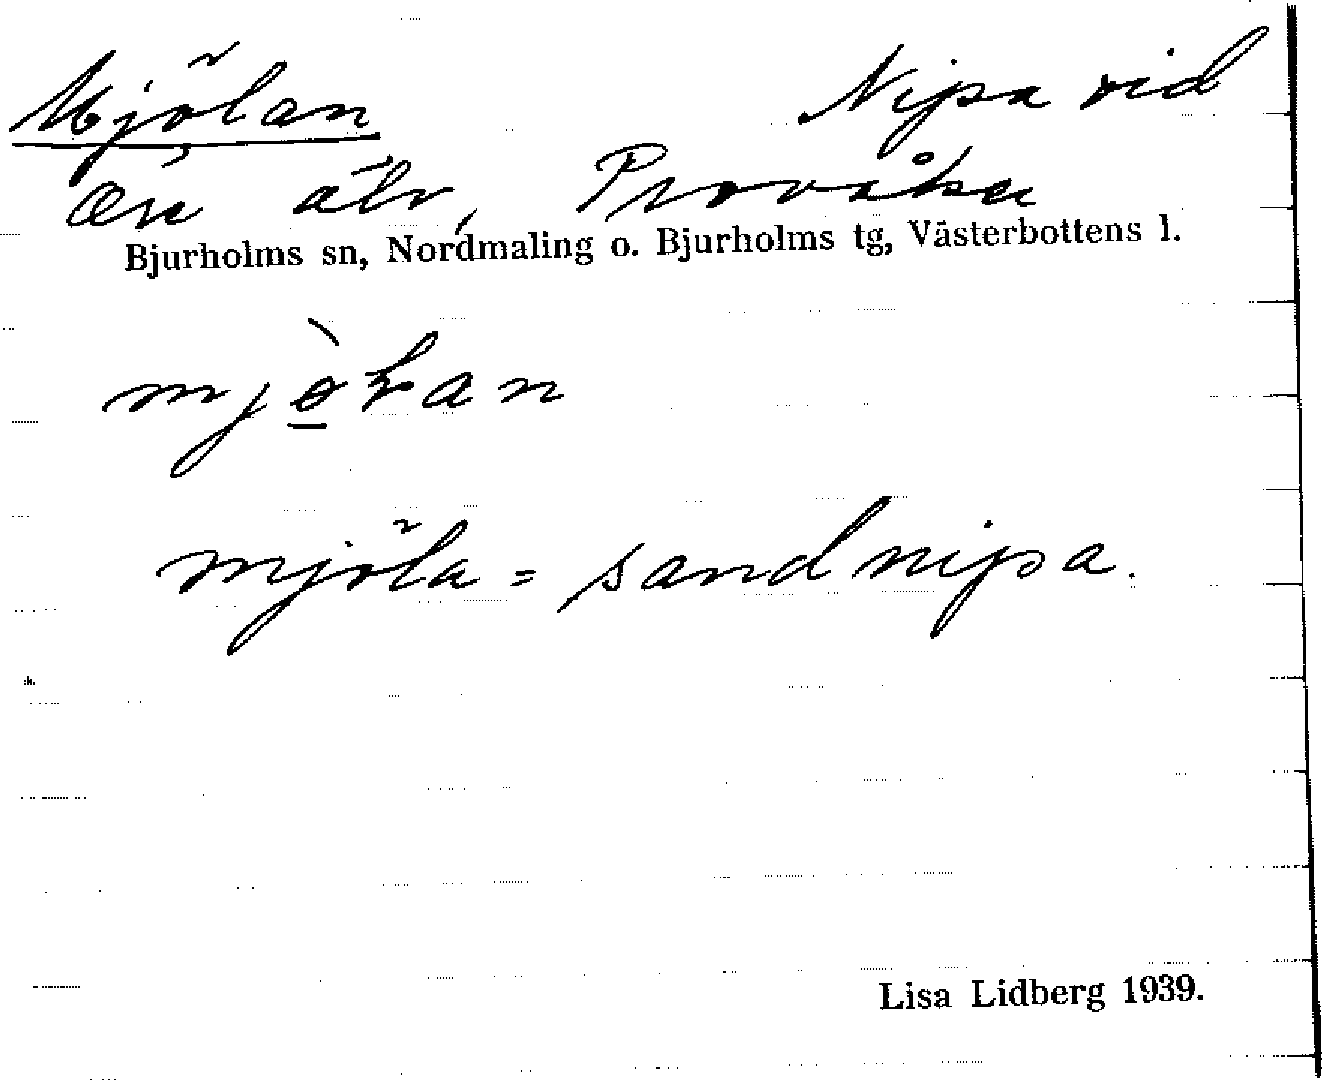 Mjölan Nipa vid
Öre älv, Provåker
Bjurholms sn, Nordmaling o. Bjurholms tg, Västerbottens l.
mjöla = sandnipa.
Lisa Lidberg 1939.